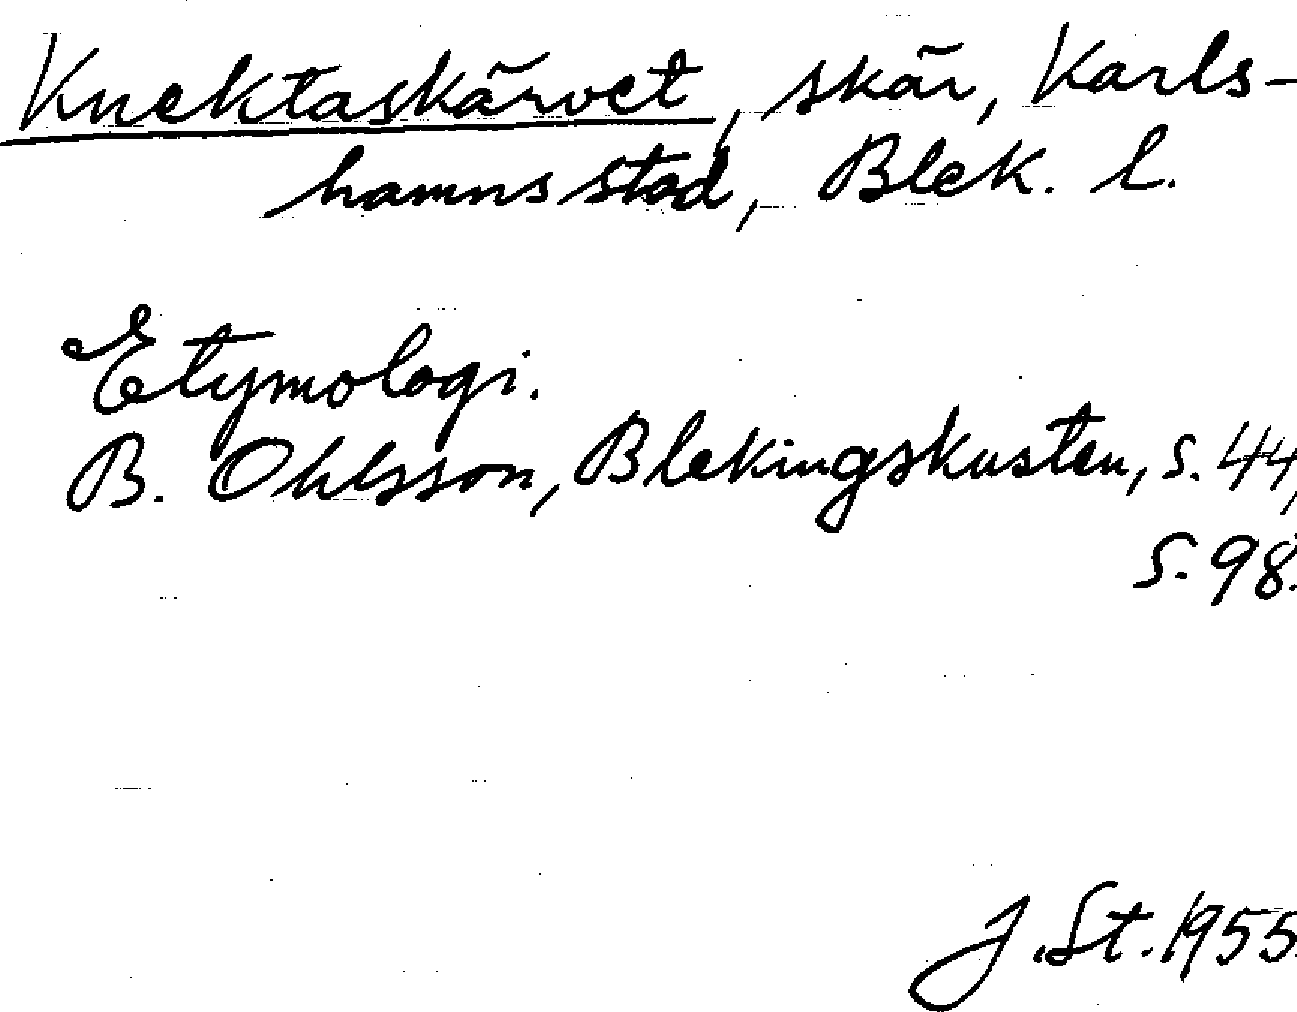 Knektaskärvet, skär, Karls-
hamns stad, Blek. l.
Etymologi.
B. Ohlsson, Blekingskusten, s. 44,
s. 98.
J. St. 1955.